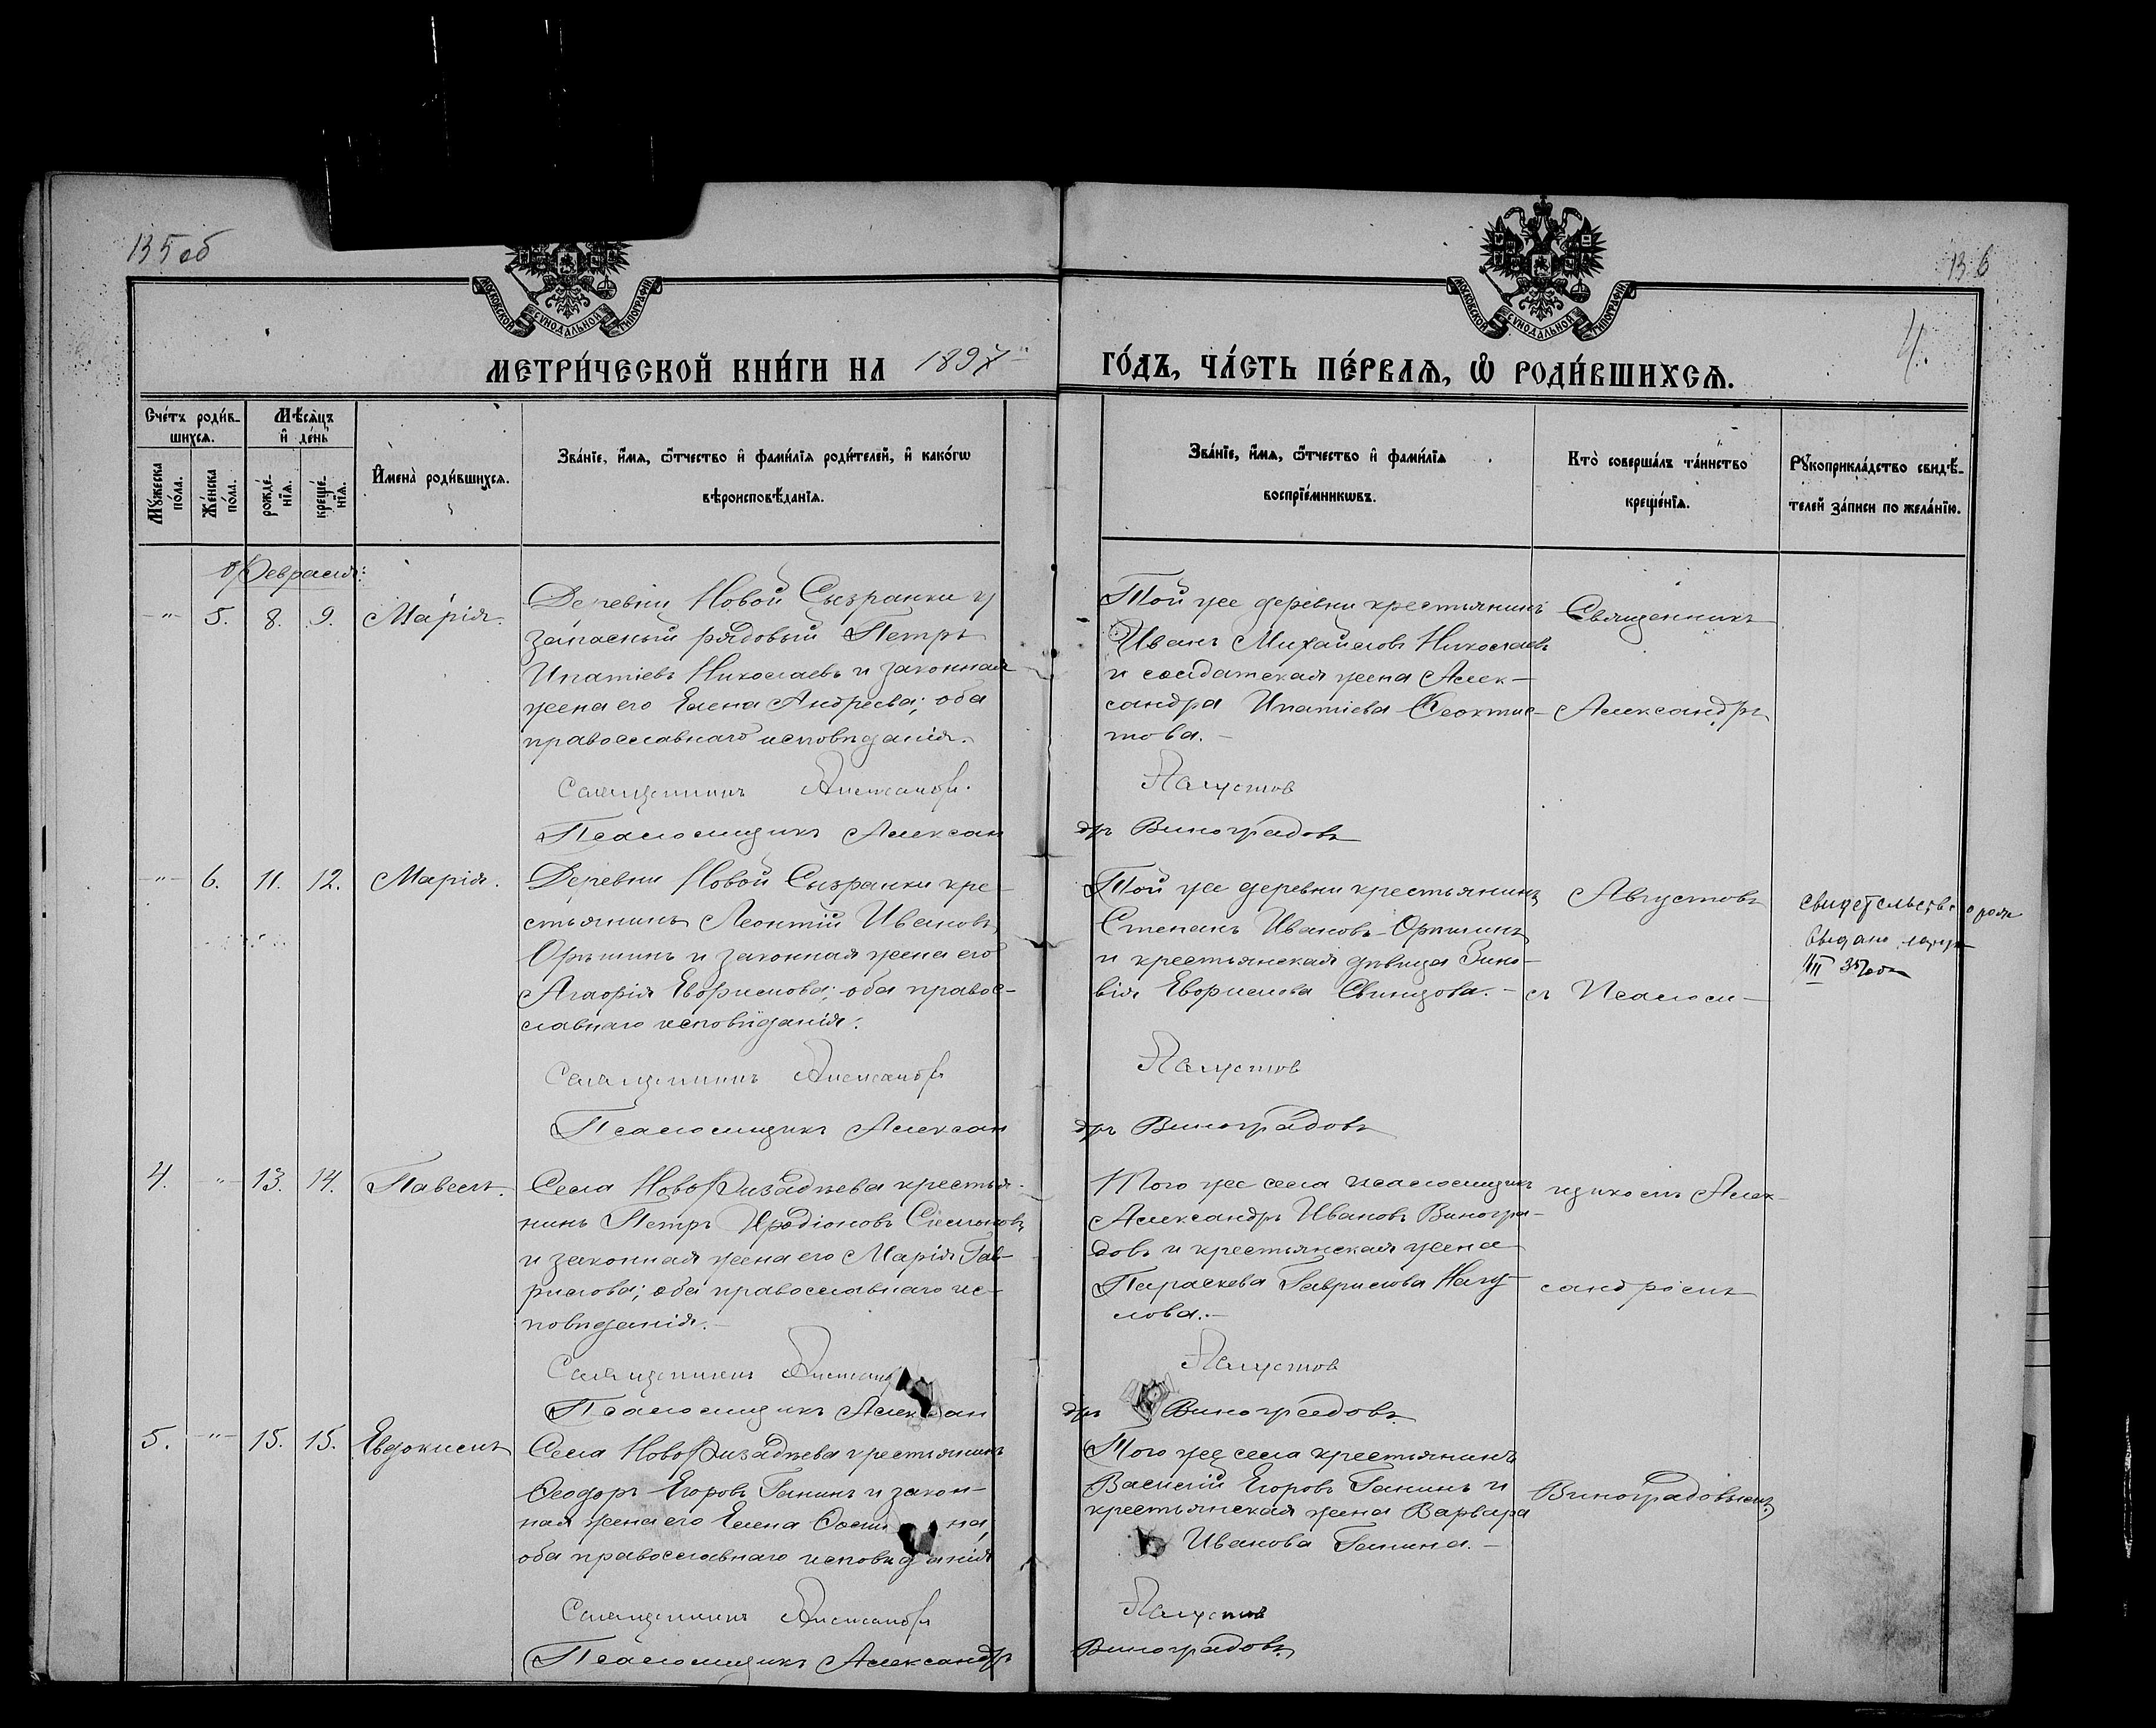 135 об
136
4.
МОСКОВСКОЙ СѴНОДАЛЬНОЙ ТИПОГРАФІИ
МОСКОВСКОЙ СѴНОДАЛЬНОЙ ТИПОГРАФІИ
МЕТРИ́ЧЕСКОЙ КНИ́ГИ НА 1897
ГО́ДЪ, ЧА́СТЬ ПЕ́РВАѦ, Ѡ҆ РОДИ́ВШИХСѦ.
Сче́тъ роди́в-
шихсѧ.
Мѣ́сѧцъ
и҆ де́нь
Мꙋ́жеска по́ла.
Же́нска по́ла.
рожде́-нїѧ.
креще́-нїѧ.
И҆мена̀ роди́вшихсѧ.
Зва́нїе, и҆́мѧ, ѻ҆́тчество и҆ фами́лїѧ роди́телей, и҆ како́гѡ
вѣроисповѣ́данїѧ.
Зва́нїе, и҆́мѧ, ѻ҆́тчество и҆ фами́лїѧ
воспрїе́мникѡвъ.
Кто̀ соверша́лъ та́инство
креще́нїѧ.
Рꙋкоприкла́дство свидѣ́-
телей за́писи по жела́нїю.
Февраля:
-"- 5. 8. 9. Марія.
Деревни Новой Сызранки
запасный рядовый Петръ
Ипатіевъ Николаевъ и законная
жена его Елена Андреева; оба
православнаго исповѣданія.
Священникъ Александръ
Псаломщикъ Алексан
Той же деревни крестьянинъ
Иванъ Михайловъ Николаевъ
и солдатская жена Алек-
сандра Ипатіева Ѳеоктис-
това.-
Августов
дръ Виноградовъ
Священникъ
Александръ
-"- 6. 11. 12. Марія.
Деревни Новой Сызранки кре-
стьянинъ Леонтій Ивановъ
Орѣшинъ и законная жена его
Агафія Евфимова; оба правос-
славнаго исповѣданія.
Священникъ Александръ
Псаломщикъ Алексан
Той же деревни крестьянинъ
Степанъ Ивановъ Орѣшинъ
и крестьянская дѣвица Зино-
вія Евфимова Свинцова.-
Августов
дръ Виноградовъ
Августовъ
съ Псалом-
свидетельство о рож
выдано
4. -"- 13. 14. Павелъ.
Села Новофизадѣева крестья-
нинъ Петръ Иродіоновъ Симоновъ
и законная жена его Марія Гав-
рилова; оба православнаго ис-
повѣданія.-
Священникъ Александръ
Псаломщикъ Алексан
Того же села псаломщикъ
Александръ Ивановъ Виногра-
довъ и крестьянская жена
Параскева Гаврилова Нагу-
лова.-
Августов
дръ Виноградовъ
щикомъ Алек-
сандромъ
5. -"- 15. 15. Евдокимъ
Села Новофизадѣева крестьянинъ
Ѳеодоръ Егоровъ Ганинъ и закон-
ная жена его Елена
оба православнаго исповѣданія
Священникъ Александръ
Псаломщикъ Александръ
Того же села крестьянинъ
Василій Егоровъ Ганинъ и
крестьянская жена Варвара
Иванова Ганина.-
Августов
Виноградовъ.
Виноградовымъ.